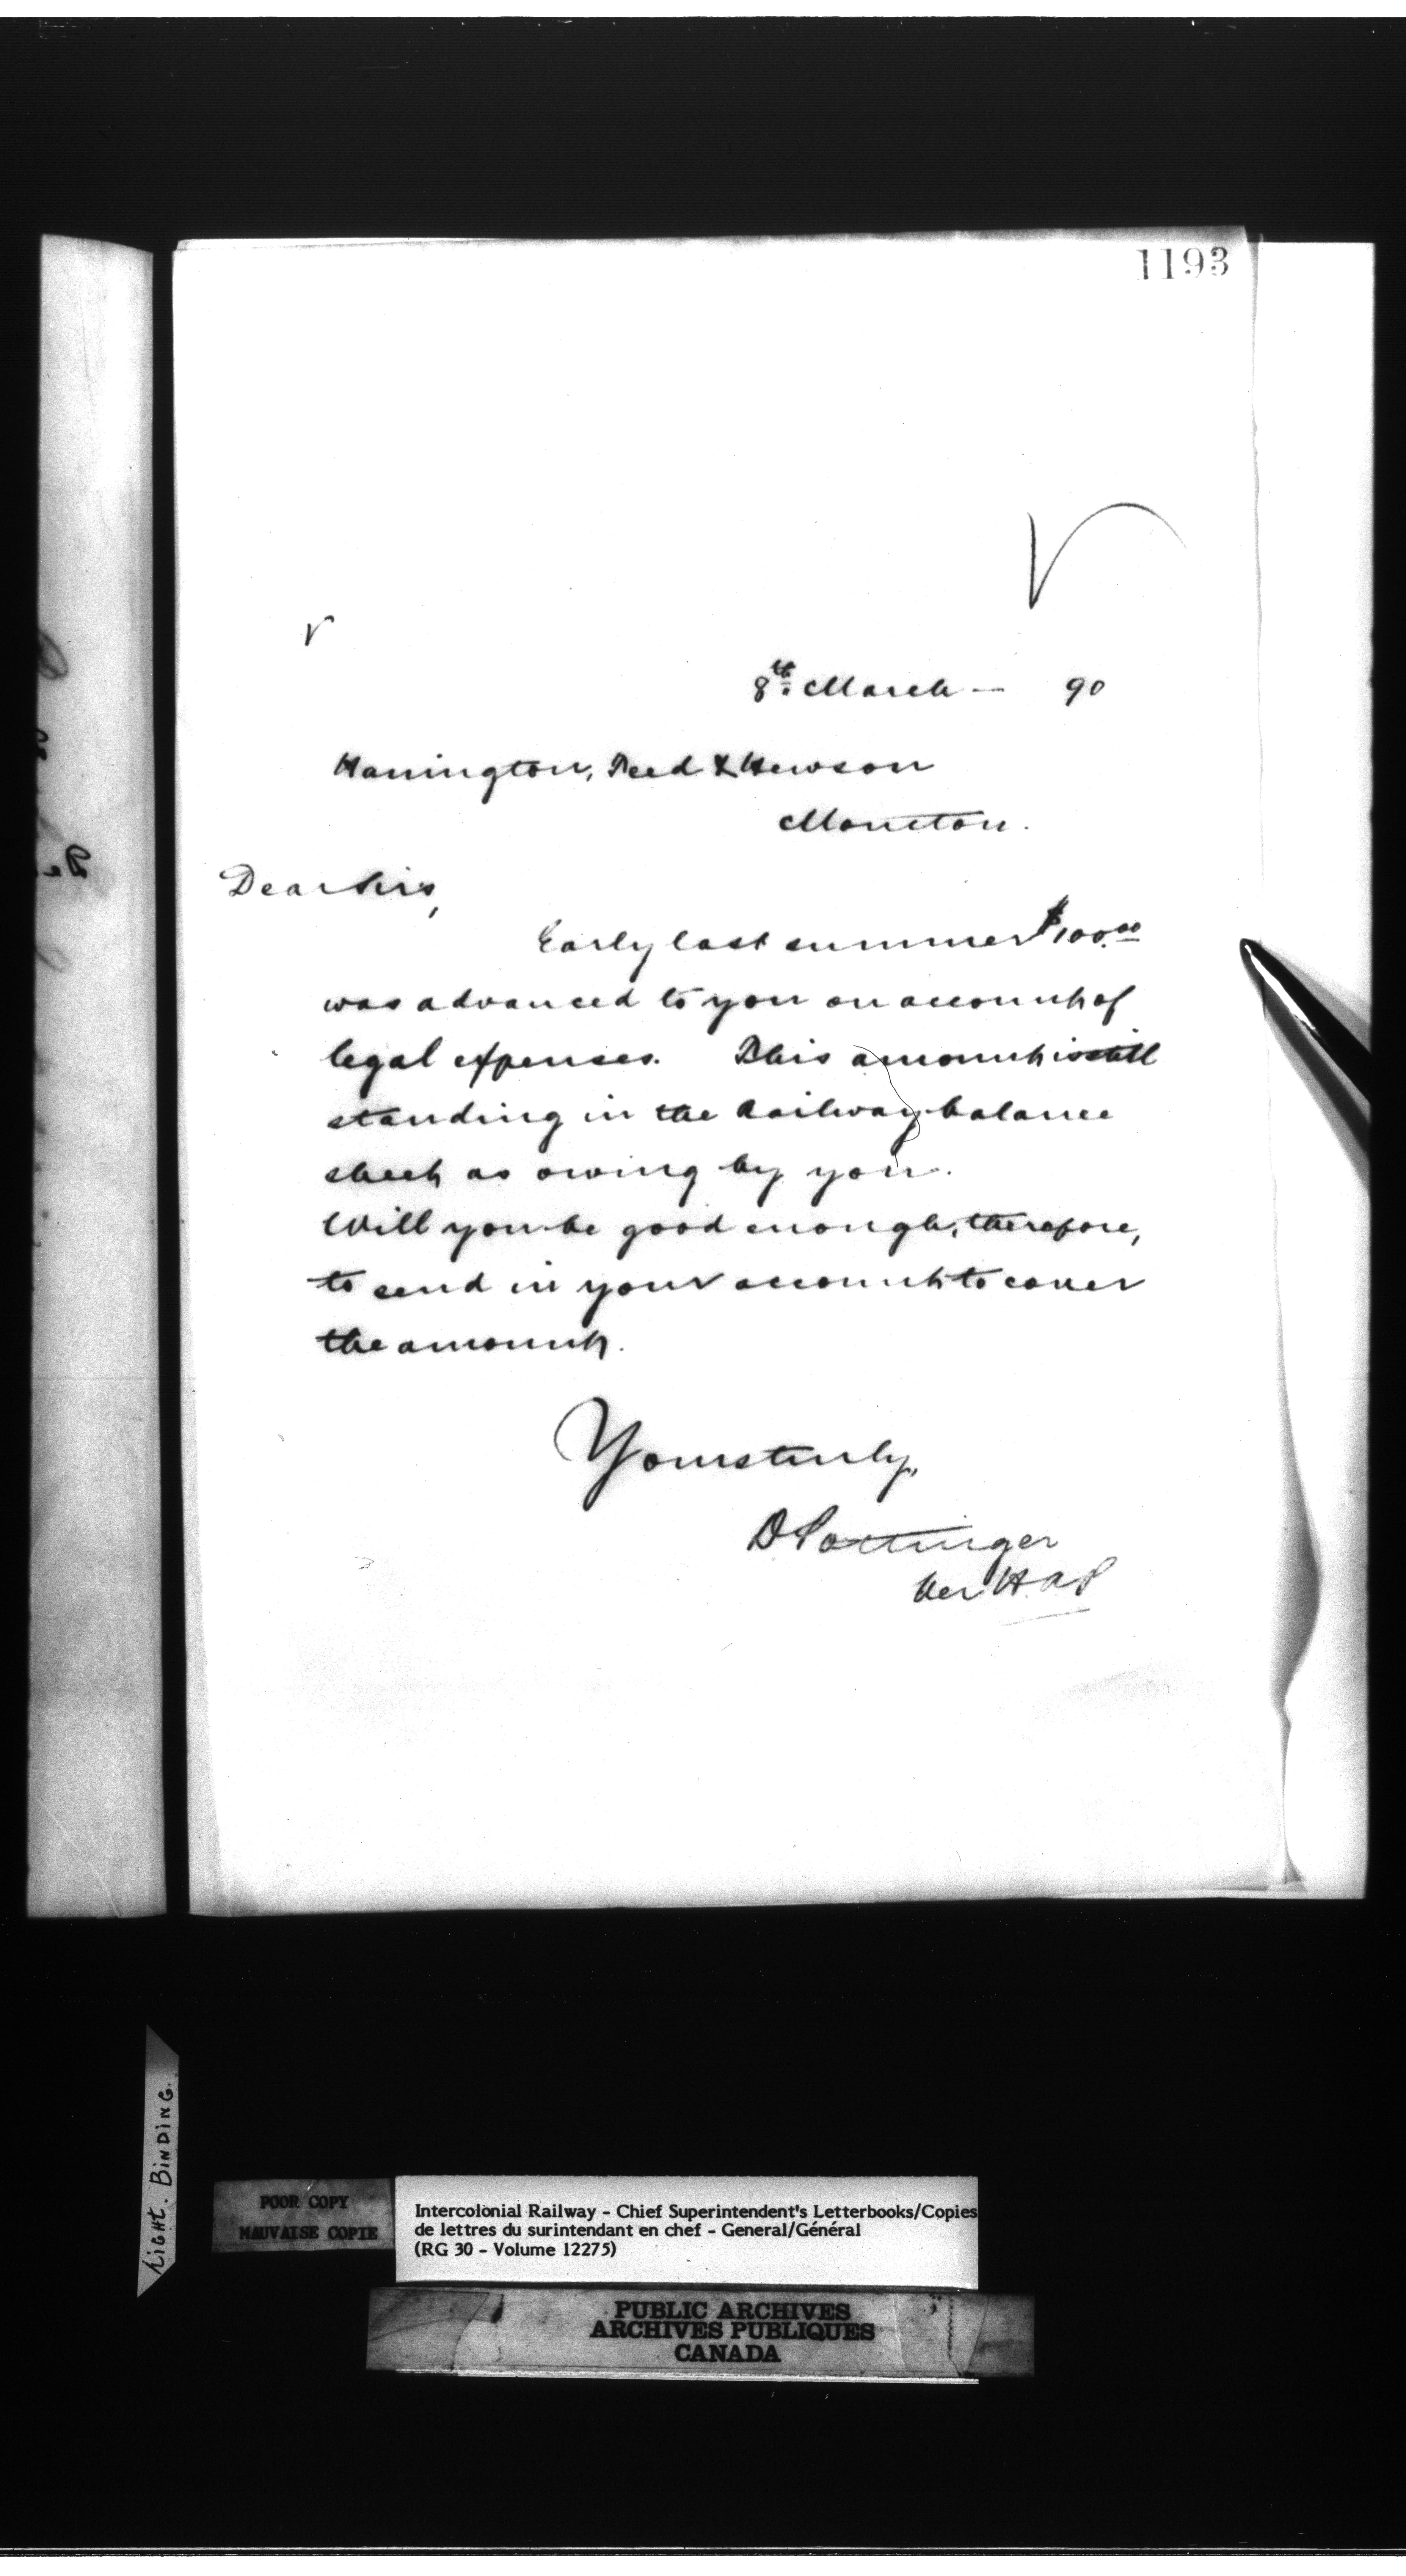 1193
8th March — 90
Hanington, Teed & Hewson
Moncton.
Dear Sirs,
Early last summer $100.00
was advanced to you on account of
legal expenses. This amount is still
standing in the Railway balance
sheet as owing by you.
Will you be good enough, therefore,
to send in your account to cover
the amount.
Yours truly,
D Pottinger
Per H.A.P
TIGHT. BINDING.
POOR COPY
MAUVAISE COPIE
Intercolonial Railway - Chief Superintendent's Letterbooks/Copies
de lettres du surintendant en chef - General/Général
(RG 30 - Volume 12275)
PUBLIC ARCHIVES
ARCHIVES PUBLIQUES
CANADA